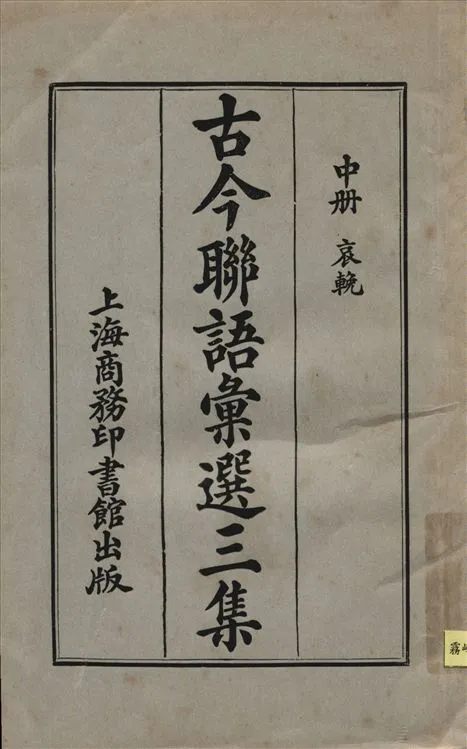 中册 哀輓
古今聯語彙選三集
上海商務印書館出版
霧